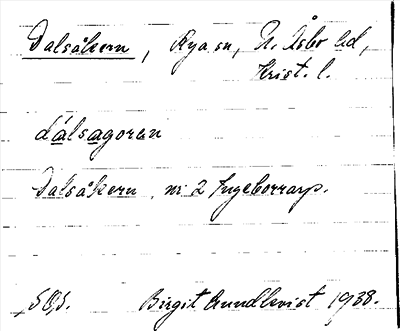 Dalsåkern, Rya sn, N. Åsbo hd,
Krist. l.
dálsagoran
Dalsåkern, nr 2 Ingeborrarp.
SOS. Birgit Sundkvist 1938.